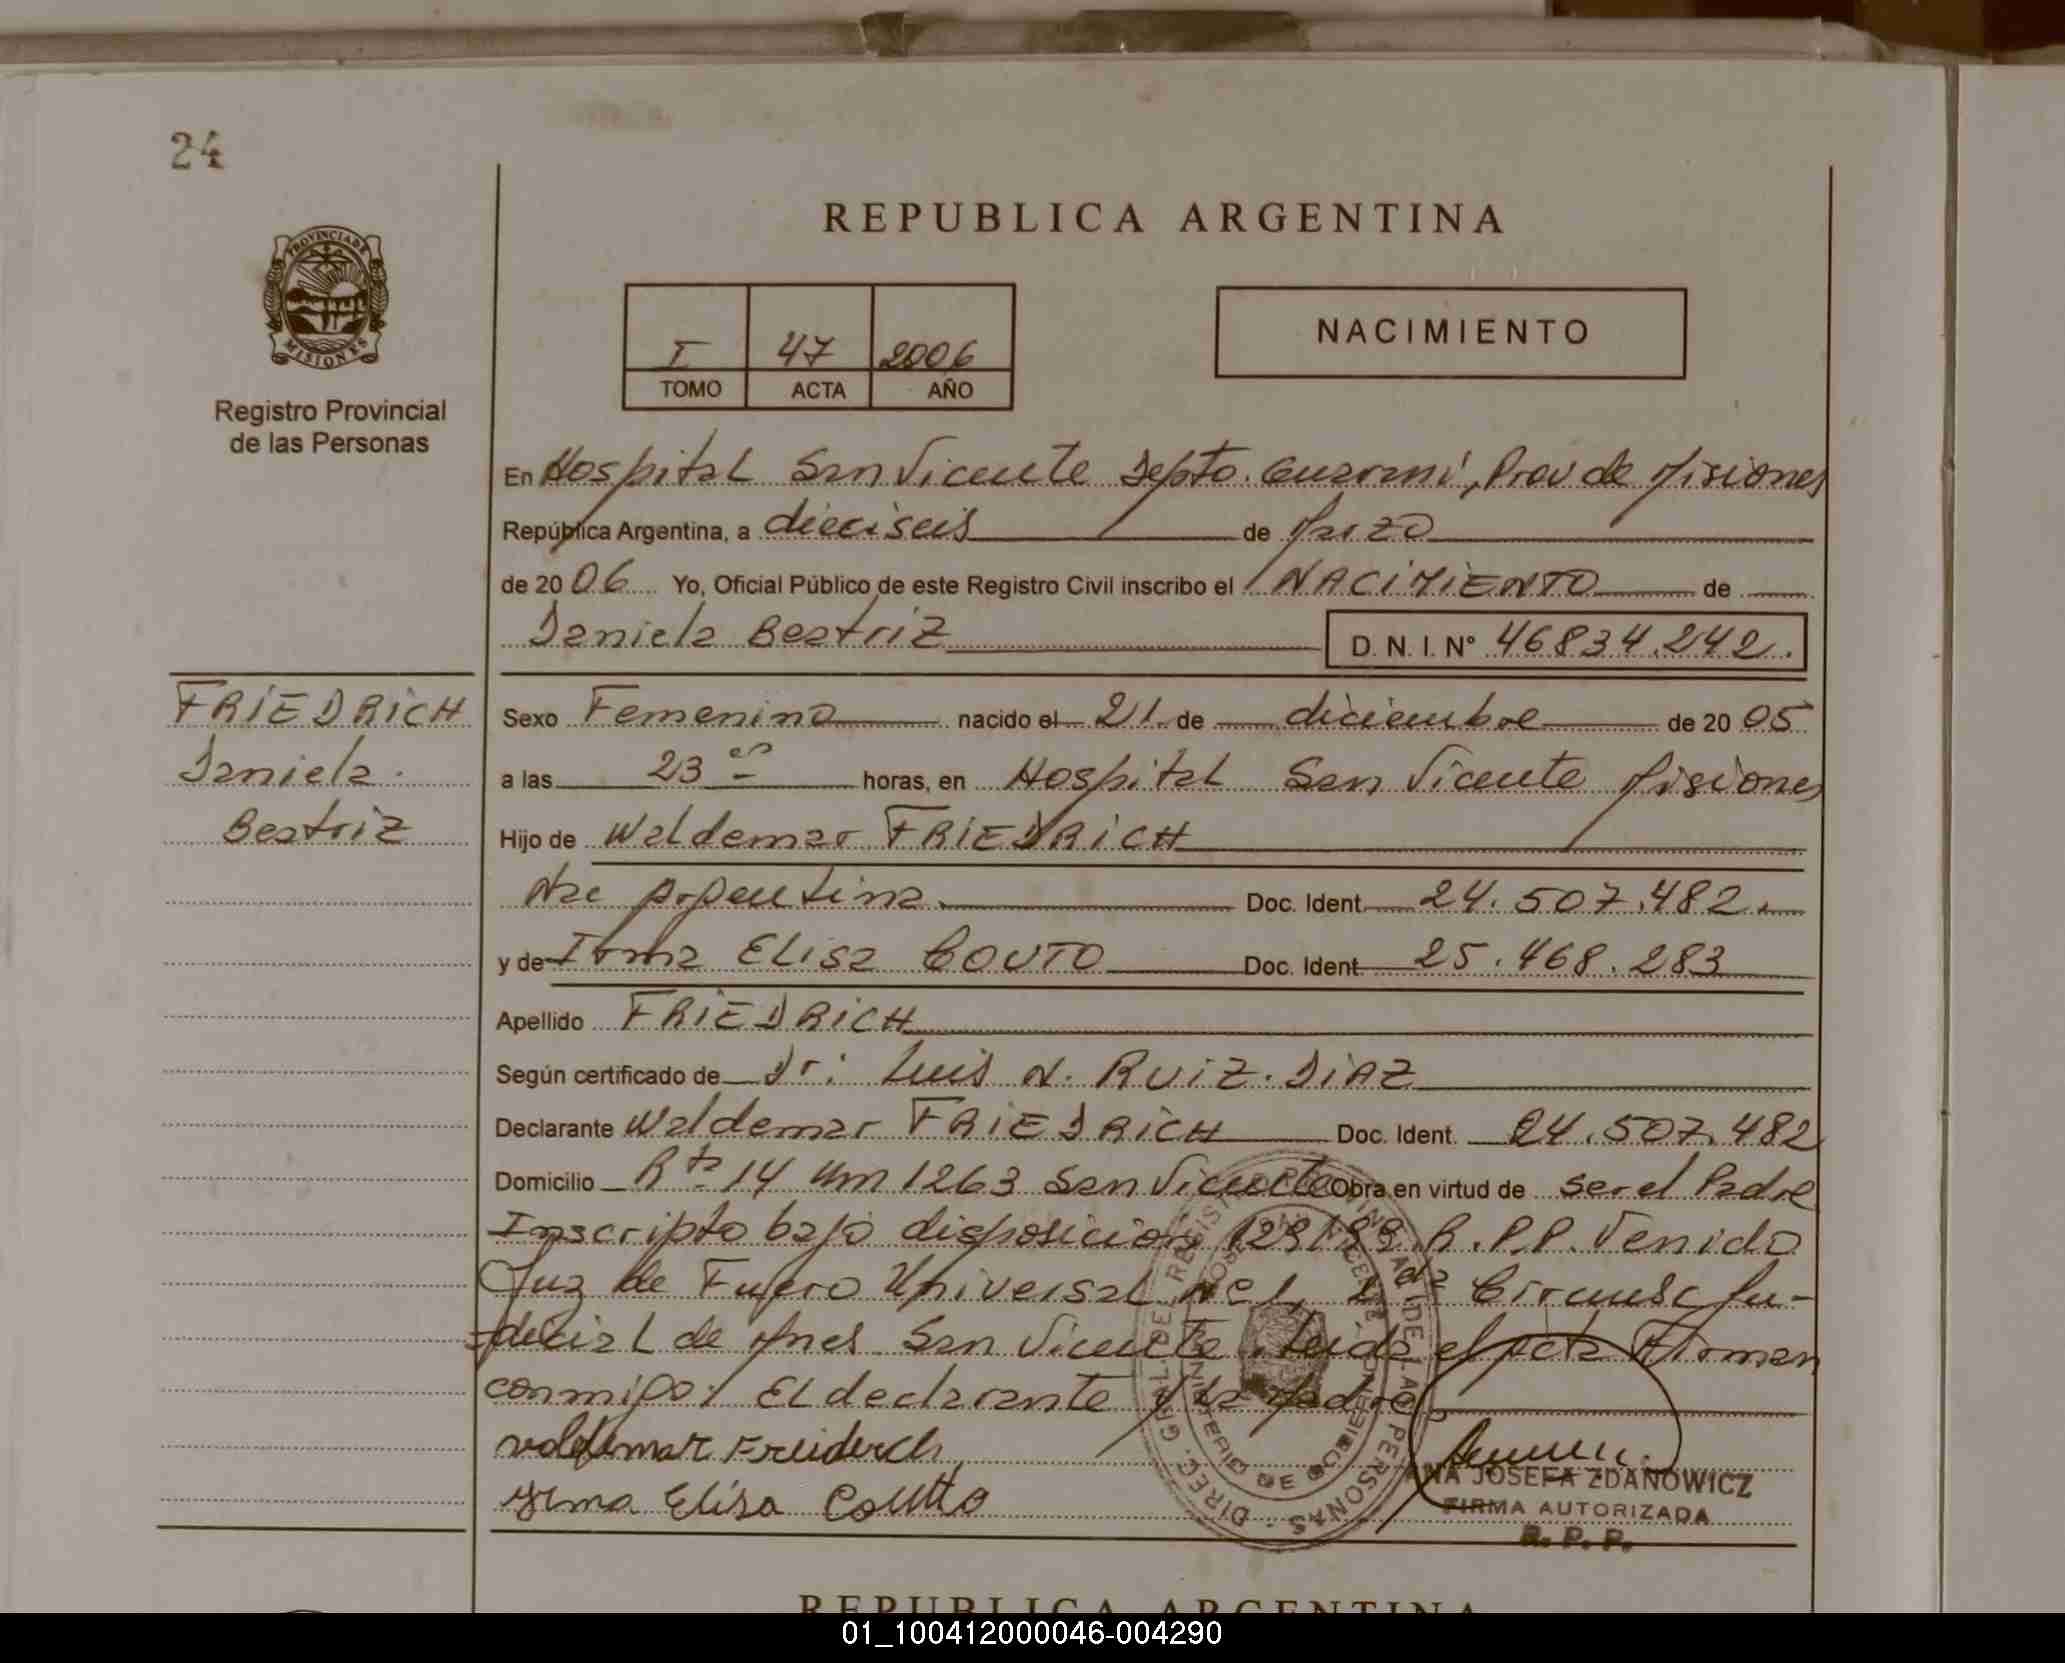 24
REPUBLICA ARGENTINA
PROVINCIA DE
MISIONES
Registro Provincial
de las Personas
I 47 2006
TOMO ACTA AÑO
NACIMIENTO
En Hospital San Vicente Depto. Guaraní, Prov de Misiones
República Argentina, a dieciseis de Marzo
de 2006 Yo, Oficial Público de este Registro Civil inscribo el NACIMIENTO de
Daniela Beatriz D. N. I. Nº 46834.242.
FRIEDRICH
Daniela
Beatriz
Sexo Femenino nacido el 21 de diciembre de 2005
a las 23 horas, en Hospital San Vicente Misiones
Hijo de Waldemar FRIEDRICH
Nac Argentina Doc. Ident 24.507.482.
y de Irma Elisa COUTO Doc. Ident 25.468.283
Apellido FRIEDRICH
Según certificado de Dr: Luis N. RUIZ. DIAZ
Declarante Waldemar FRIEDRICH Doc. Ident. 24.507.482
Domicilio Rta 14 Km 1263 San Vicente Obra en virtud de ser el Padre
Inscripto bajo disposicion 129/99. R.P.P. Venido
Juz de Fuero Universal Nº 1, 2da Circunsc Ju-
dicial de Mnes San Vicente. Leida el Acta Firman
conmigo: El declarante y la Madre
Irma Elisa Coutto
ANA JOSEFA ZDANOWICZ
FIRMA AUTORIZADA
R. P. P.
REPUBLICA ARGENTINA
01_100412000046-004290